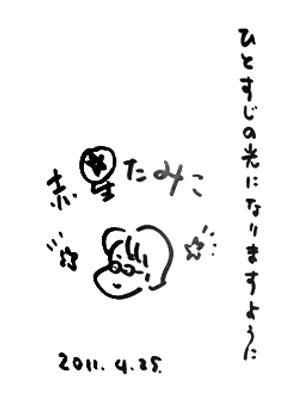 ひとすじの光になりますように
赤星たみこ
2011.4.25.